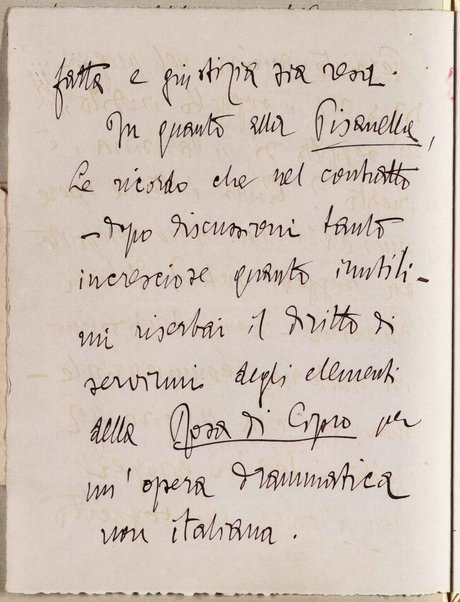 fatta e giustizia sia resa.
In quanto alla Pisanella,
Le ricordo che nel contratto
– dopo discussioni tanto
incresciose quanto inutili –
mi riserbai il diritto di
servirmi degli elementi
della Rosa di Cipro per
un'opera drammatica
non italiana.